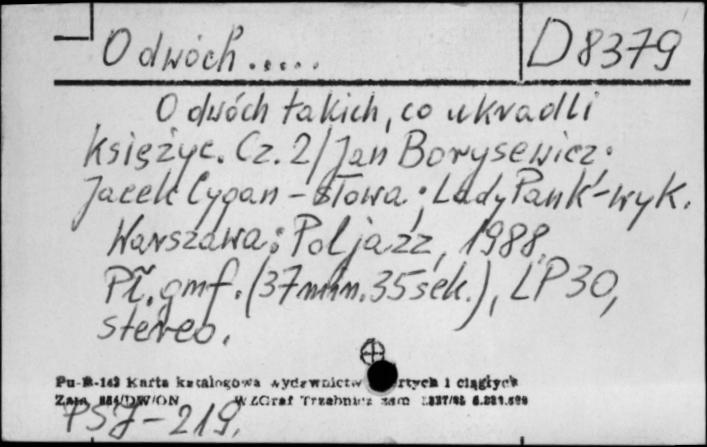 O dwóch..... D8379
O dwóch takich, co ukradli
księżyc. Cz. 2/Jan Borysewicz;
Jacek Cygan - słowa; Lady Pank - wyk.
Warszawa: Poljazz, 1988.
Pł. gmf. (37min. 35sek.), LP30,
stereo.
143 Karta katalogowa wydawnictw ciągłych
Zam. DW/ON WZGraf Trzebnica zam
PSJ-219.